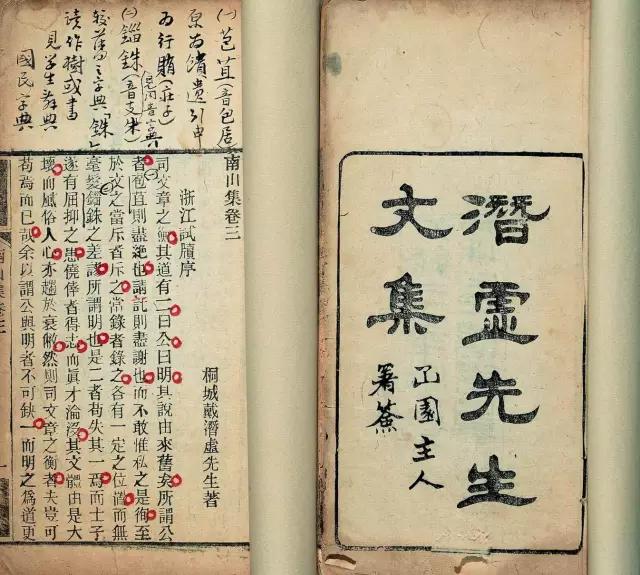 潛虛先生
文集
園主人
署簽
㈠苞苴(音包居)
原为饋遺引申
为行賄(莊子)
㈡錙銖(音支朱)
較舊之字典「銖」
讀作樹或書
見學生辭典
國民字典
南山集卷三
浙江試牘序
桐城戴潛虛先生著
司文章之衡其道有二曰公曰明其說由來舊矣所謂公
者苞苴則盡絕也請託則盡謝也而不敢惟私之是徇至
於文之當斥者斥之當錄者錄之各有一定之位置而無
毫髮錙銖之差謬所謂明也是二者苟失其一焉而士子
遂有屈抑之患僥倖者得志而眞才淪沒其文體由是大
壞而風俗人心亦趨於衰敝然則司文章之衡者夫豈可
苟焉而已哉余以謂公與明者不可缺一而明之爲道更